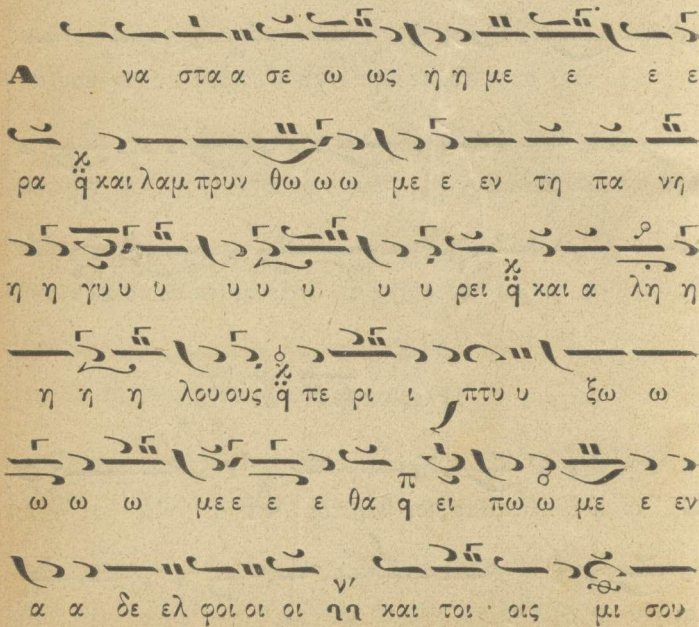 Α να στα α α σε ω ως η η με ε ε ε
ρα και λαμ πρυν θω ω ω με ε εν τη πα νη
η η γυ υ υ υ υ υ υ υ ρει και α λη η
η η η λου ους πε ρι ι πτυ υ ξω ω
ω ω ω με ε ε ε θα ει πω ω με ε εν
α α δε ελ φοι οι οι και τοι οις μι σου